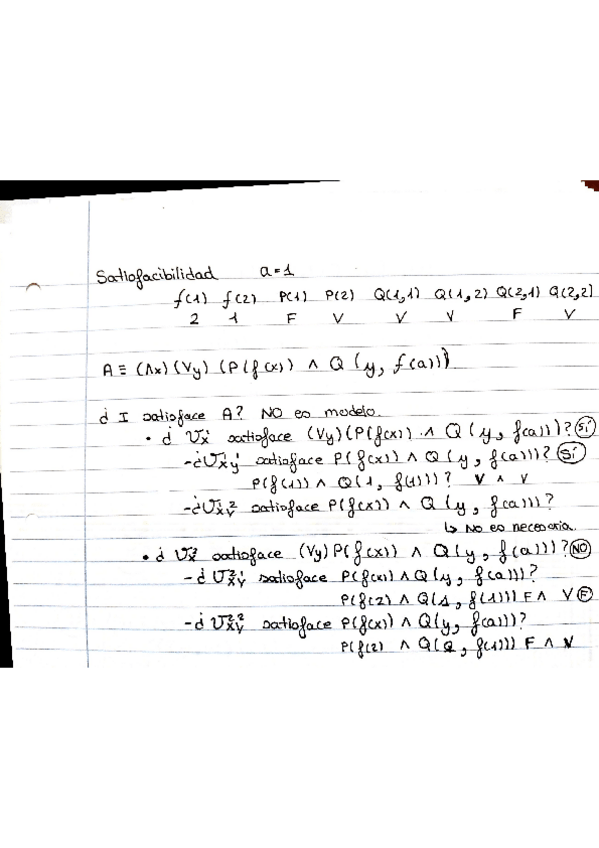 Satisfacibilidad a=1
f(1) f(2) P(1) P(2) Q(1,1) Q(1,2) Q(2,1) Q(2,2)
2 1 F V V V F V
A ≡ (Λx)(Vy) (P(f(x)) ∧ Q (y, f(a)))
¿ I satisface A? NO es modelo.
• ¿ U¹x satisface (Vy)(P(f(x)) ∧ Q (y, f(a)))? Sí
-¿U¹x¹y satisface P(f(x)) ∧ Q (y, f(a))? Sí
P(f(1)) ∧ Q(1, f(1))? V ∧ V
-¿U¹x²y satisface P(f(x)) ∧ Q (y, f(a))?
↳ No es necesaria.
• ¿ U²x satisface (Vy) P(f(x)) ∧ Q(y, f(a)))? NO
-¿ U²x¹y satisface P(f(x)) ∧ Q(y, f(a))?
P(f(2) ∧ Q(1, f(1))) F ∧ V F
-¿ U²x²y satisface P(f(x)) ∧ Q(y, f(a))?
P(f(2) ∧ Q(2, f(1))) F ∧ V